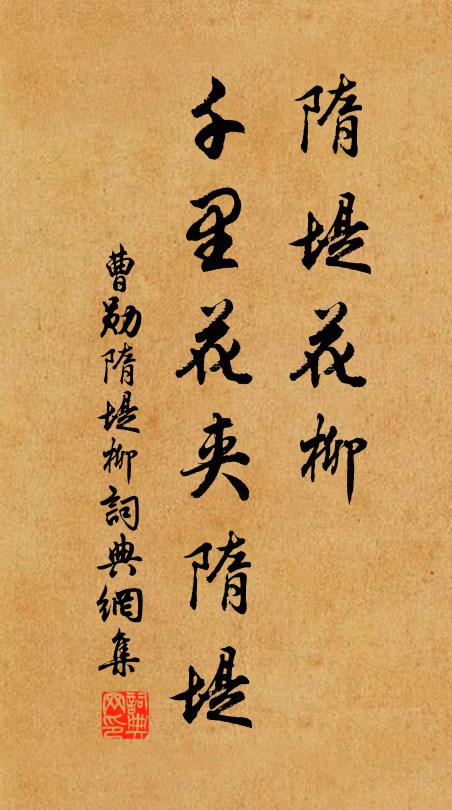 隋堤花柳
千里花夹隋堤
曹勋隋堤柳詞典網集
詞典网印